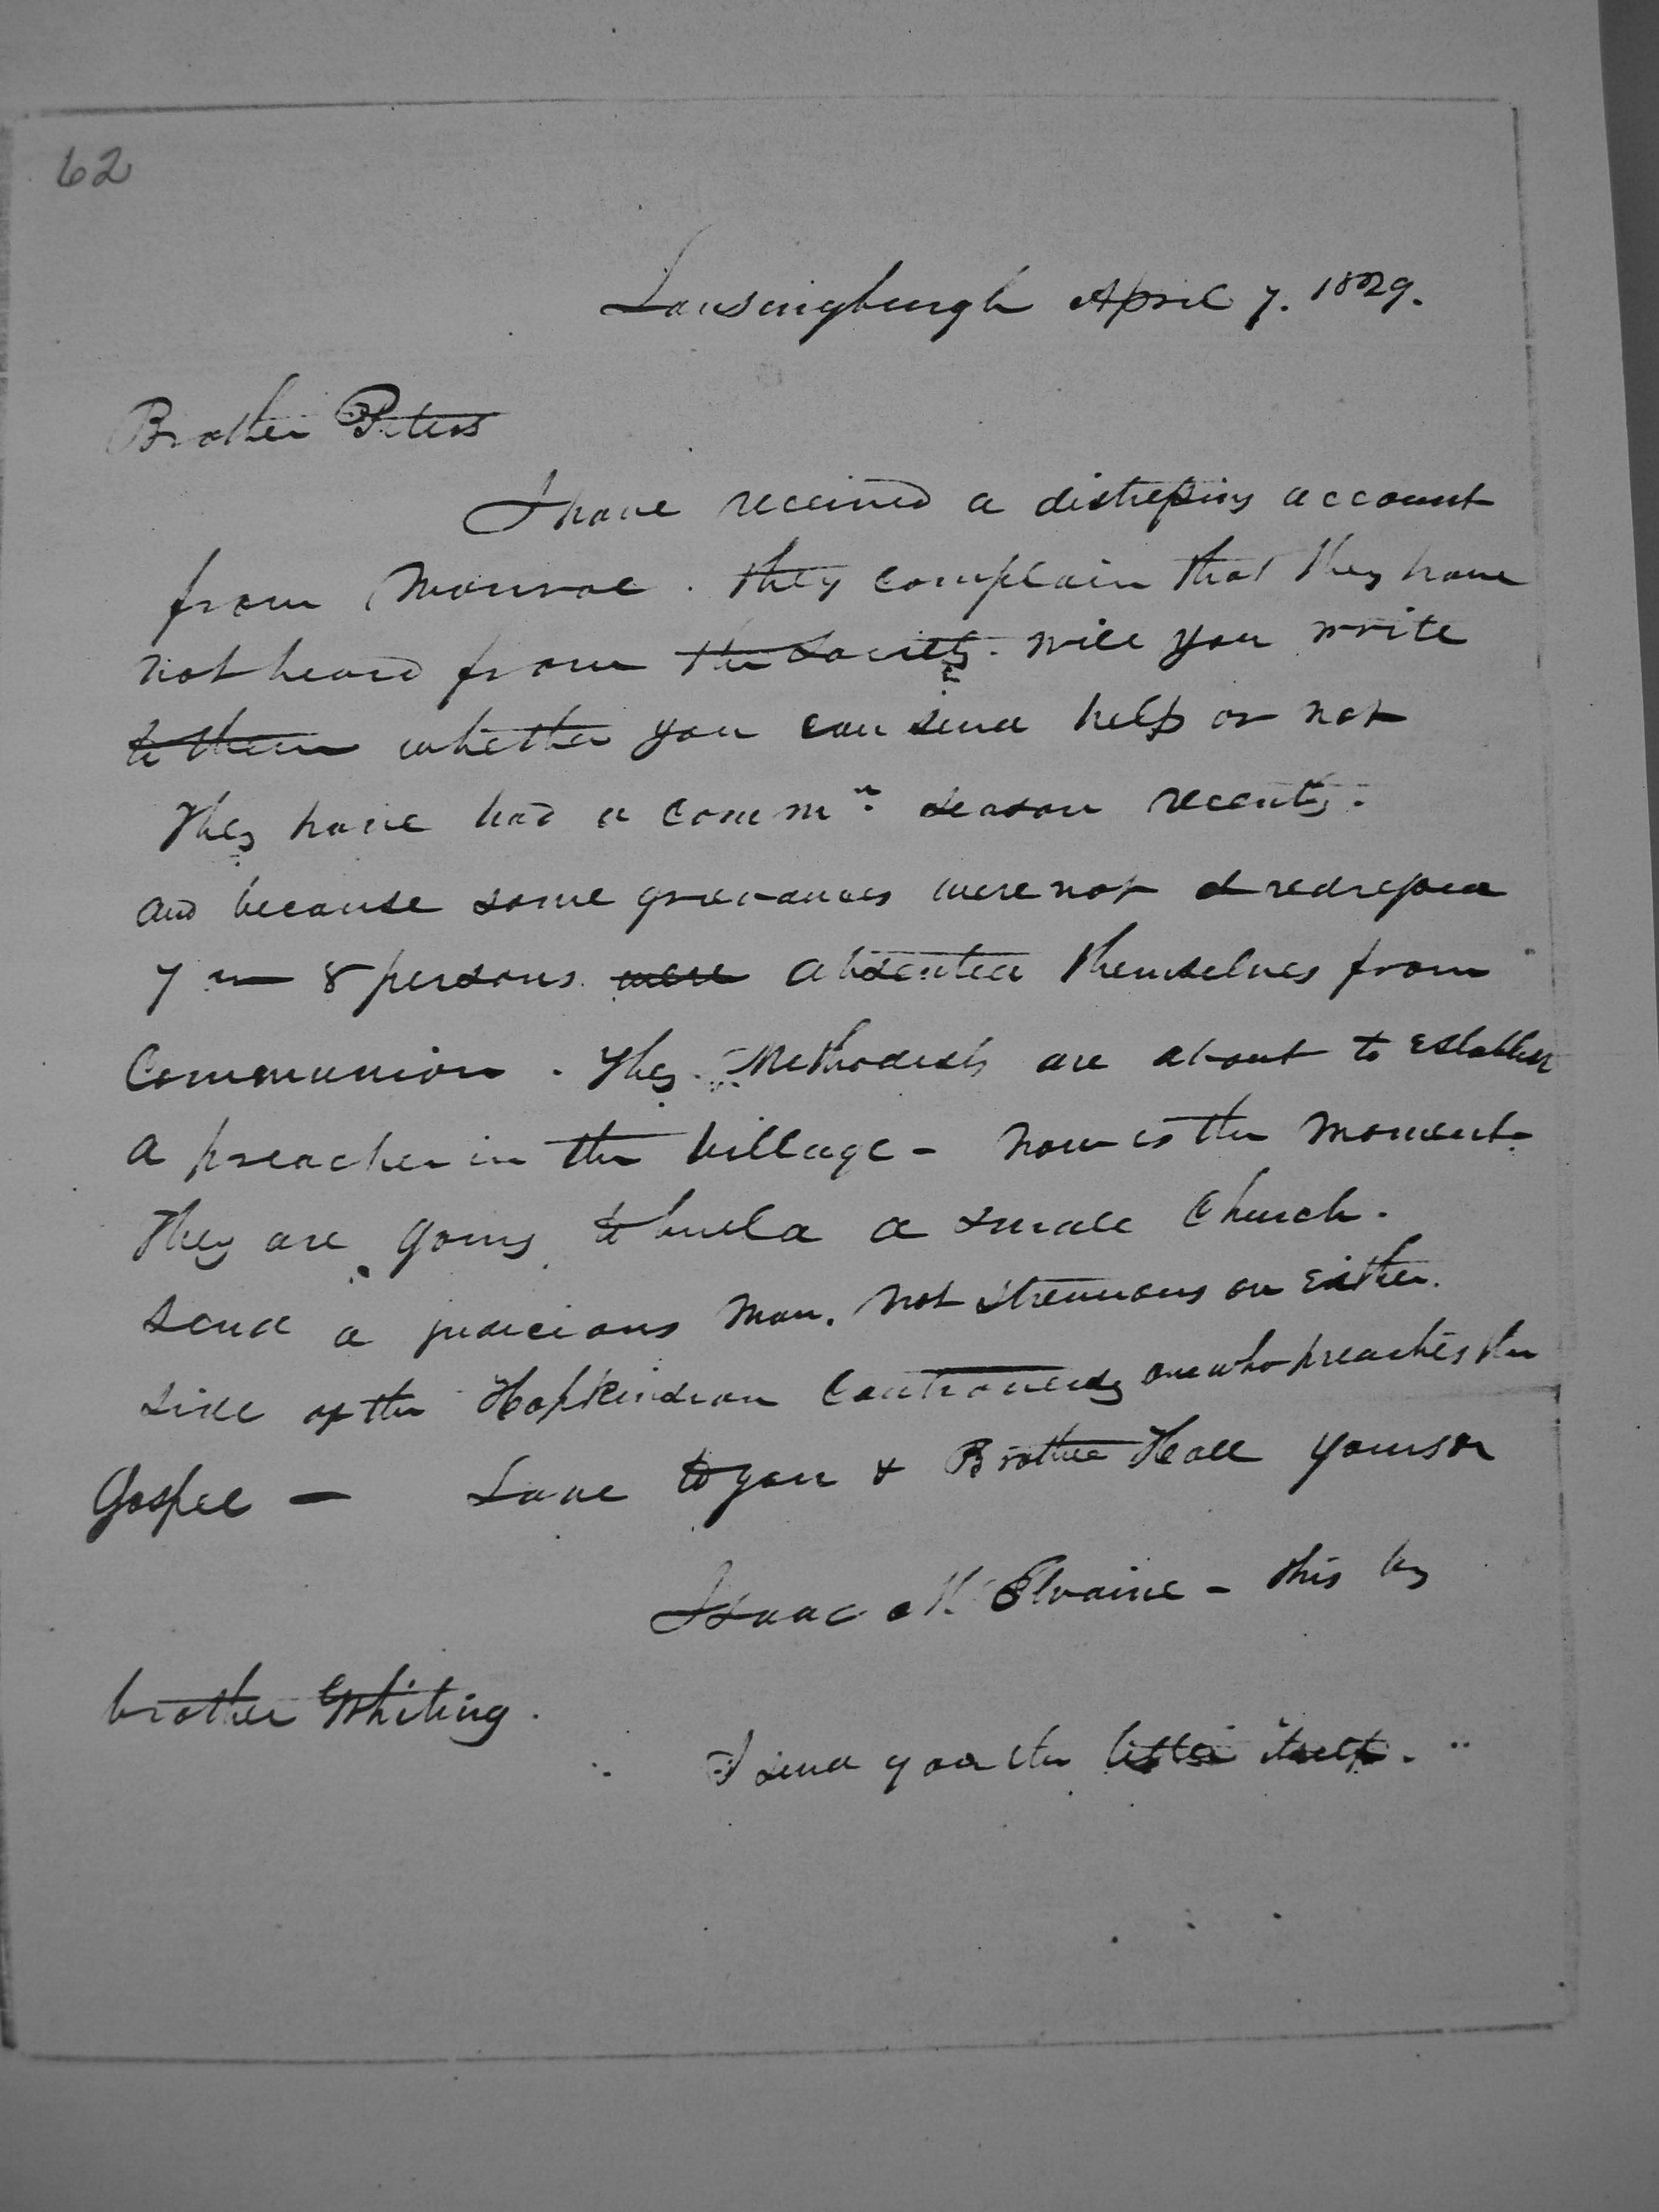 62
Lansingburgh April 7. 1829.
Brother Peters
I have received a distressing account
from Monroe. They complain that they have
not heard from the Society. will you write
to them whether you can send help or not
They have had a commn. season recently.
and because some grievances were not redressed
7 or 8 persons were absented themselves from
Communion. The Methodists are about to establish
a preacher in the village - now is the moment.
They are going to build a small Church.
Send a judicious man. not strenuous on Either.
side of the Hopkinsian Controversy one who preaches the
Gospel — Love to you & Brother Hall yours
Isaac McIlvaine - this by
brother Whiting.
I send you the letter itself.